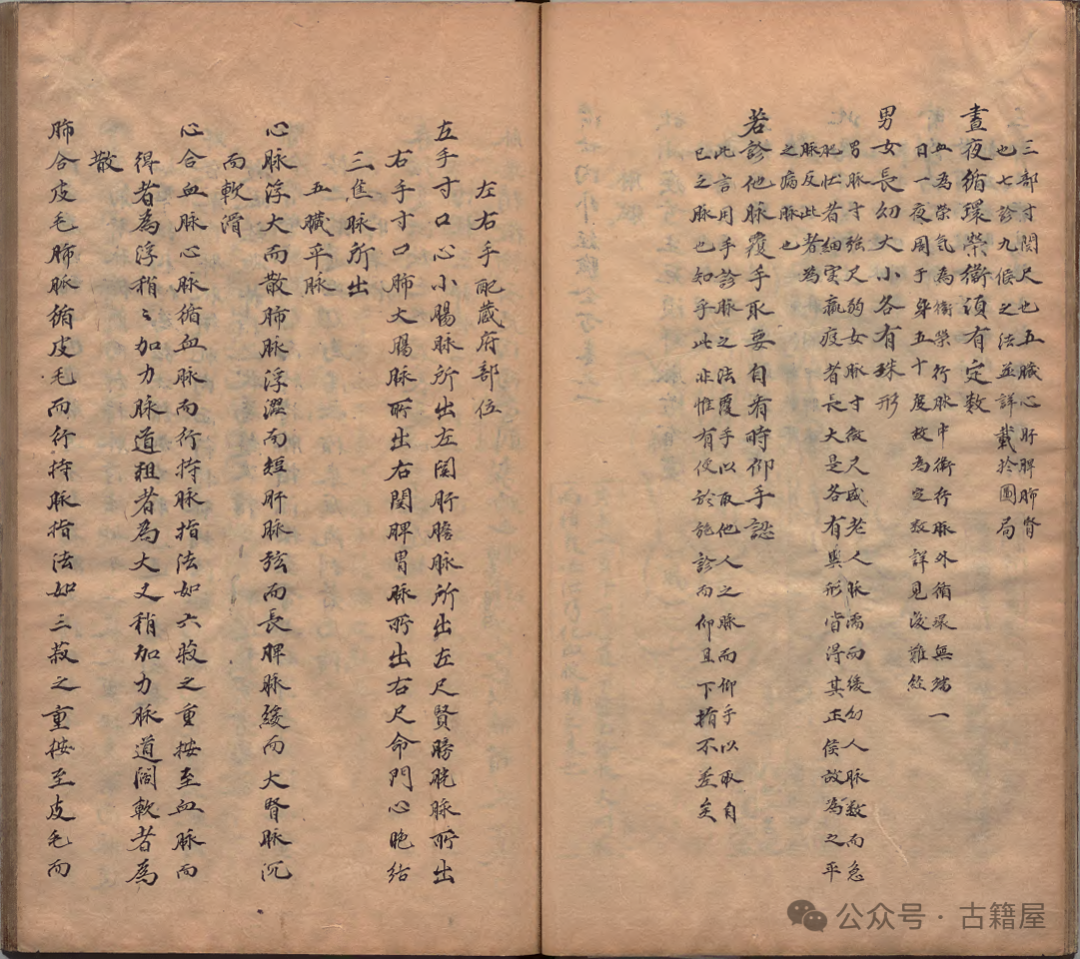 三部寸関尺也五臟心肝脾肺腎
也七診九候之法並詳載於圖局
晝夜循環榮衞須有定数
血為榮氣為衞榮行脉中衞行脉外循環無端一
日一夜周于身五十度故為定数詳見後難經
男女長幼大小各有殊形
男脉寸強尺弱女脉寸微尺盛老人脉濡而緩幻人脉数而急
肥壮者細实羸瘦者長大是各有異形皆得其正侯故為之平
脉反此者為
之病脉也
若診他脉覆手取要自看時仰手認
此言用手診脉之法覆手以取他人之脉而仰手以取自
已之脉也知乎此非惟有便於施診而仰且下指不差矣
左右手配蔵府部位
左手寸口心小腸脉所出左関肝膽脉所出左尺賢膀胱脉所出
右手寸口肺大腸脉所出右関脾胃脉所出右尺命門心胞絡
三焦脉所出
五臟平脉
心脉浮大而散肺脉浮澀而短肝脉弦而長脾脉緩而大腎脉沉
而軟滑
心合血脉心脉循血脉而行持脉指法如六菽之重按至血脉而
得者為浮稍〻加力脉道粗者為大又稍加力脉道闊軟者為
散
肺合皮毛肺脉循皮毛而行持脉指法如三菽之重按至皮毛而
公众号·古籍屋